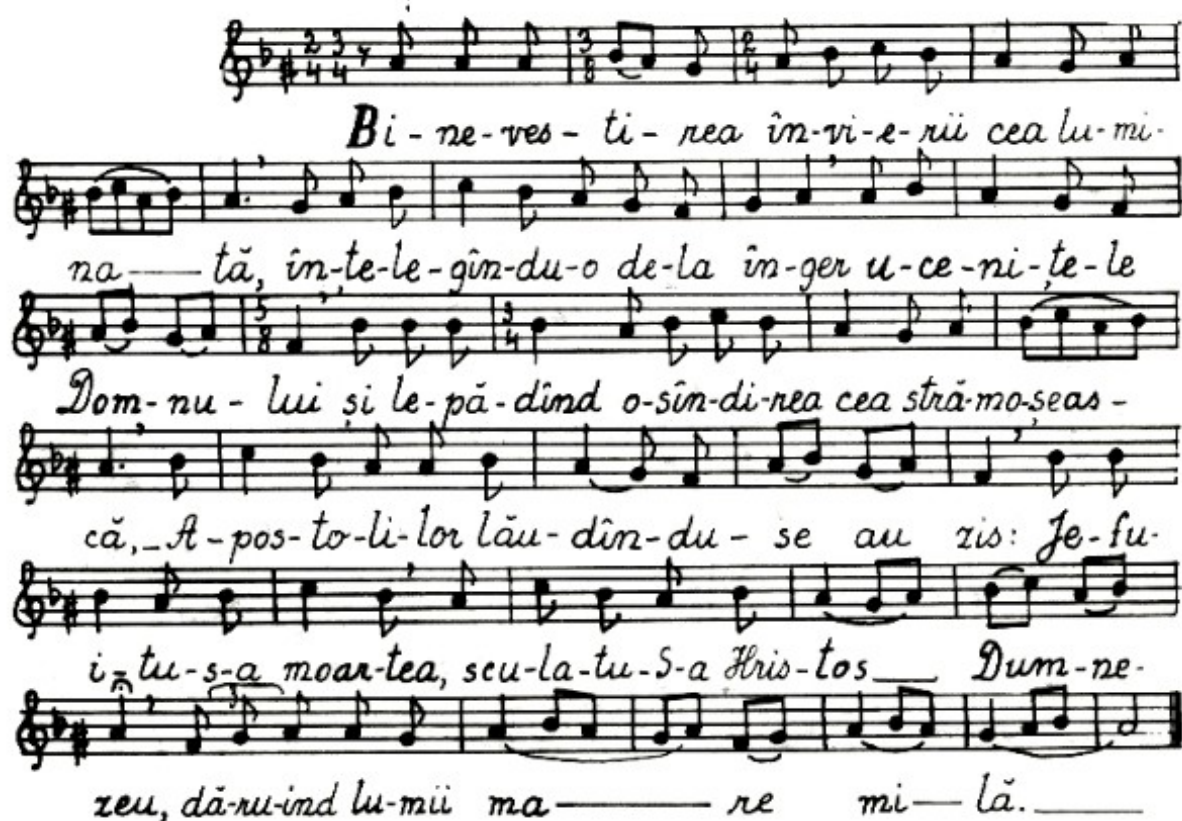 Bi-ne-ves-ti-rea în-vi-e-rii cea lu-mi-
na—tă, în-țe-le-gîn-du-o de-la în-ger u-ce-ni-țe-le
Dom-nu-lui și le-pă-dînd o-sîn-di-rea cea stră-mo-șeas-
că,_A-pos-to-li-lor lău-dîn-du-se au zis: Je-fu-
i-tu-s-a moar-tea, scu-la-tu-S-a Hris-tos___ Dum-ne-
zeu, dă-ru-ind lu-mii ma———re mi—lă.____